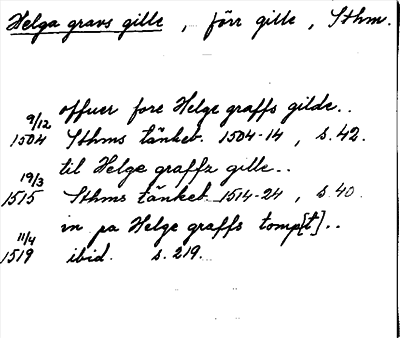 Helga gravs gille, förr gille, Sthm.
offuer fore Helge graffs gilde..
9/12 1504 Sthms tänkeb. 1504-14, s. 42.
til Helge graffz gille..
19/3 1515 Sthms tänkeb. 1514-24, s. 40.
in pa Helge graffs tomp[t]..
11/4 1519 ibid. s. 219.